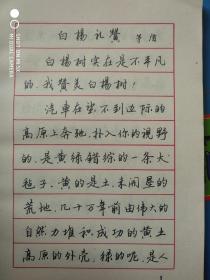 白楊礼贊 茅盾
白楊树实在是不平凡
的,我贊美白楊树!
汽車在望不到边际的
高原上奔驰,扑入你的视野
的,是黄绿错综的一条大
毡子。黄的是土,未開垦的
荒地,几十万年前由偉大的
自然力堆积成功的黄土
高原的外壳;绿的呢,是人
1